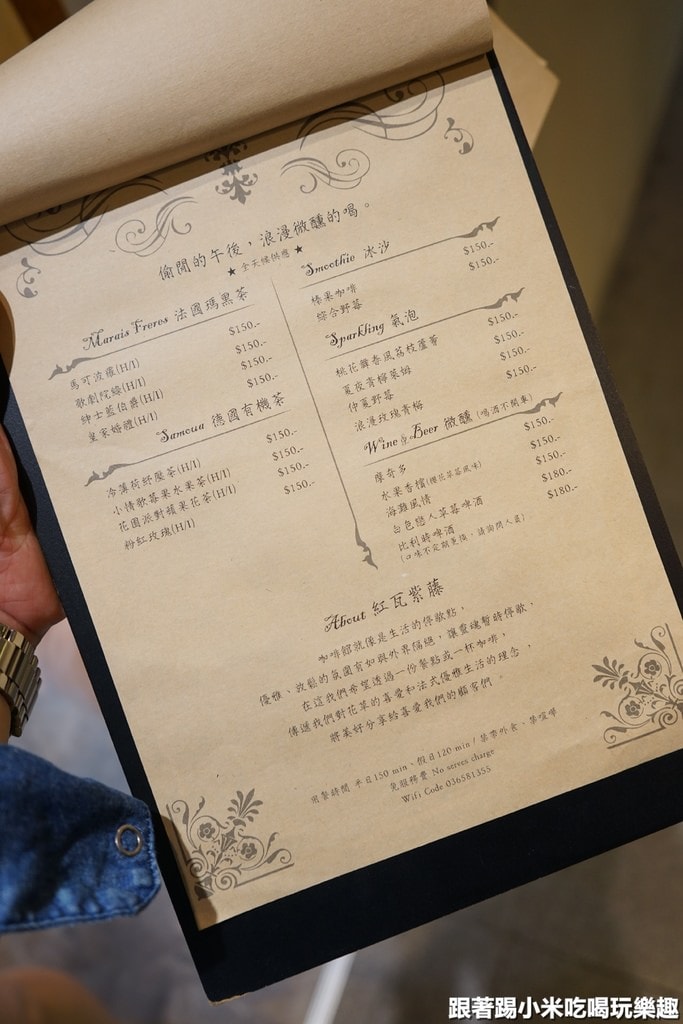 偷閒的午後，浪漫微醺的喝。
★ 全天候供應 ★
Marais Freres 法國瑪黑茶
馬可波羅(H/I) $150.-
歌劇院綠(H/I) $150.-
紳士藍伯爵(H/I) $150.-
皇家婚禮(H/I) $150.-
Samova 德國有機茶
冷薄荷紓壓茶(H/I) $150.-
小情歌莓果水果茶(H/I) $150.-
花園派對蘋果花茶(H/I) $150.-
粉紅玫瑰(H/I) $150.-
Smoothie 冰沙
榛果咖啡 $150.-
綜合野莓 $150.-
Sparkling 氣泡
桃花舞春風荔枝蘆薈 $150.-
夏夜青檸萊姆 $150.-
仲夏野莓 $150.-
浪漫玫瑰青梅 $150.-
Wine & Beer 微醺 (喝酒不開車)
摩奇多 $150.-
水果香檳(櫻花草莓風味) $150.-
海灘風情 $150.-
白色戀人草莓啤酒 $180.-
比利時啤酒 $180.-
(口味不定期更換，請詢問人員)
About 紅瓦紫藤
咖啡館就像是生活的停歇點，
優雅、放鬆的氛圍有如與外界隔絕，讓靈魂暫時停歇，
在這我們希望透過一份餐點或一杯咖啡，
傳遞我們對花草的喜愛和法式優雅生活的理念，
將美好分享給喜愛我們的顧客們。
用餐時間 平日150 min、假日120 min / 禁帶外食、禁喧嘩
免服務費 No serves charge
Wifi Code 036581355
跟著踢小米吃喝玩樂趣